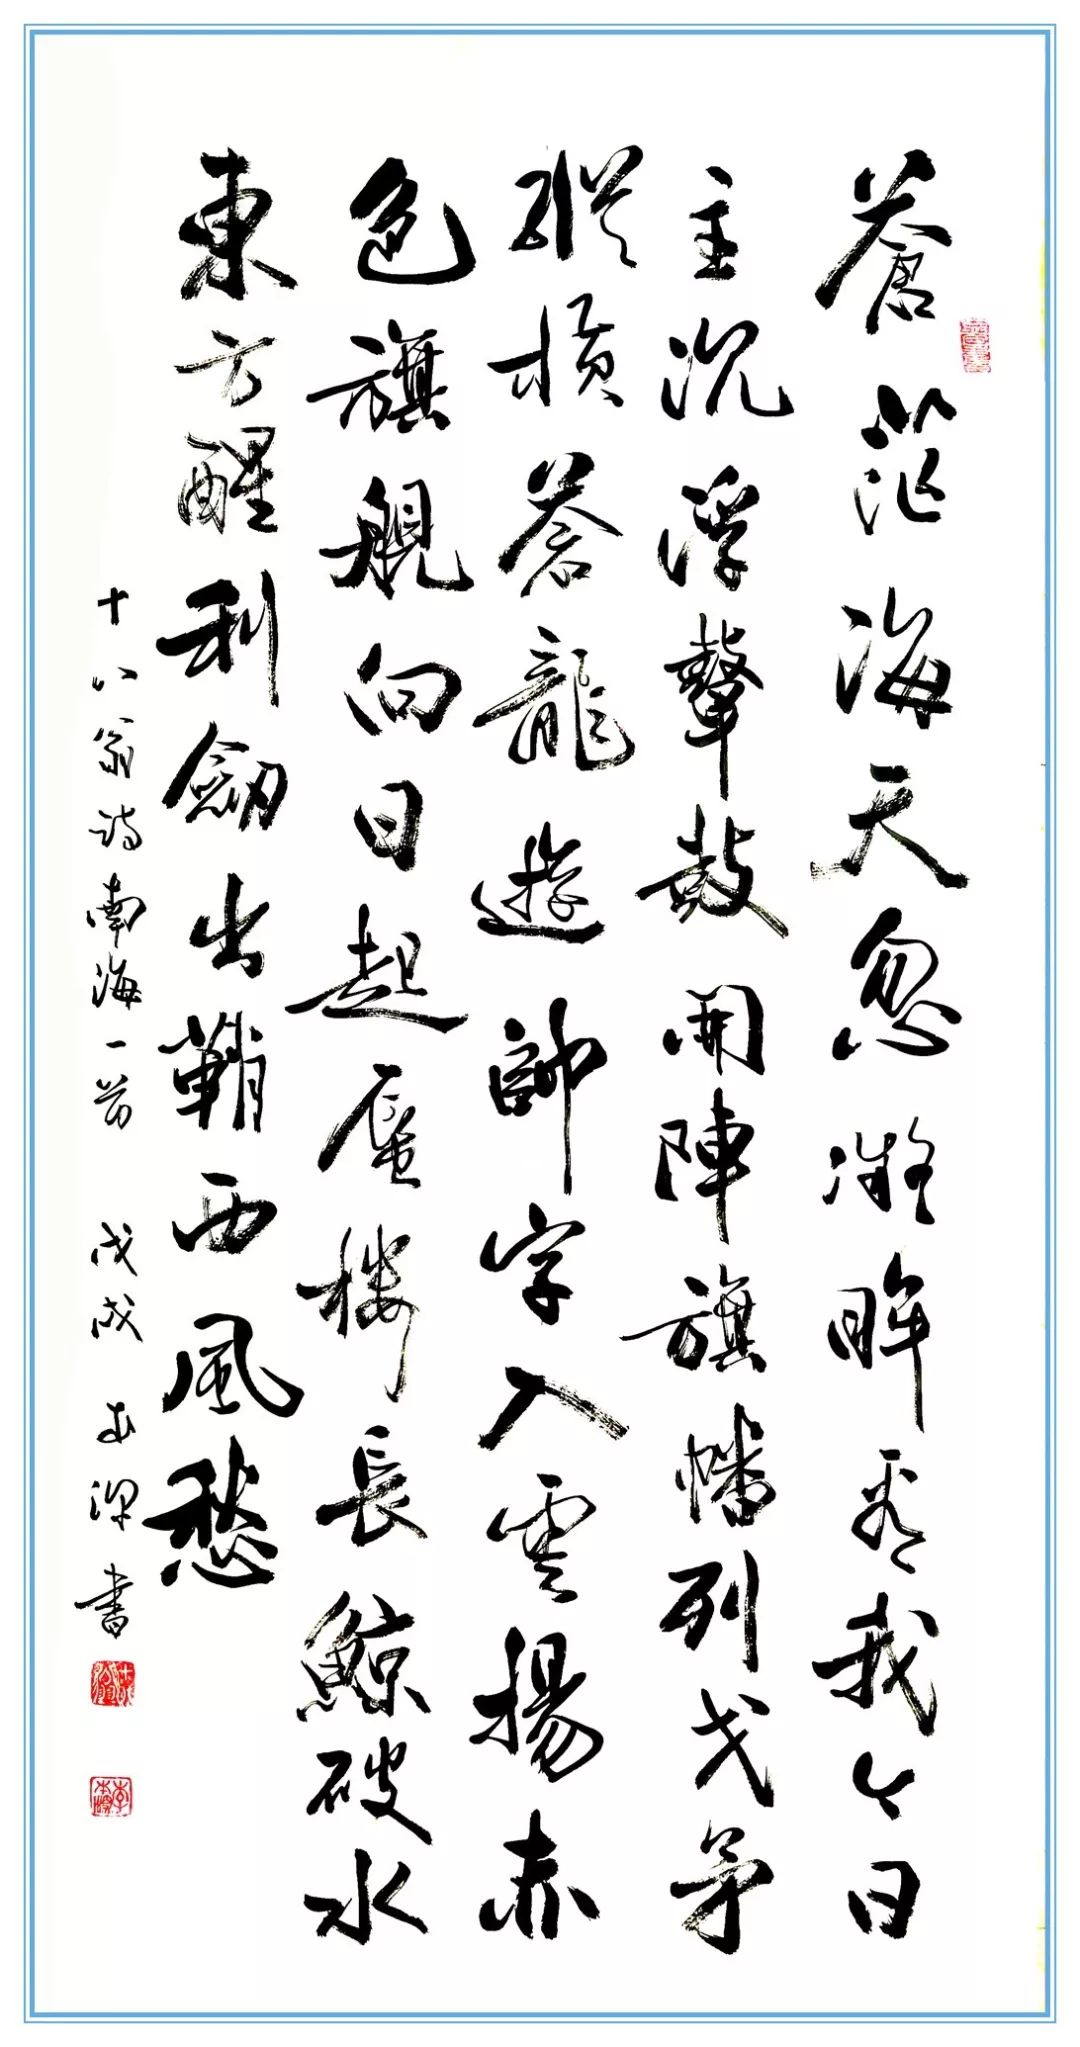 蒼茫海天忽凝眸看我今日
主沉浮擊鼓開陣旗幡列戈矛
縱橫蒼龍遊帥字入雲揚赤
色旗舰向日起蜃樓長鯨破水
東方醒利劍出鞘西風愁
十八翁詩南海一首 戊戌 本深書
李本深